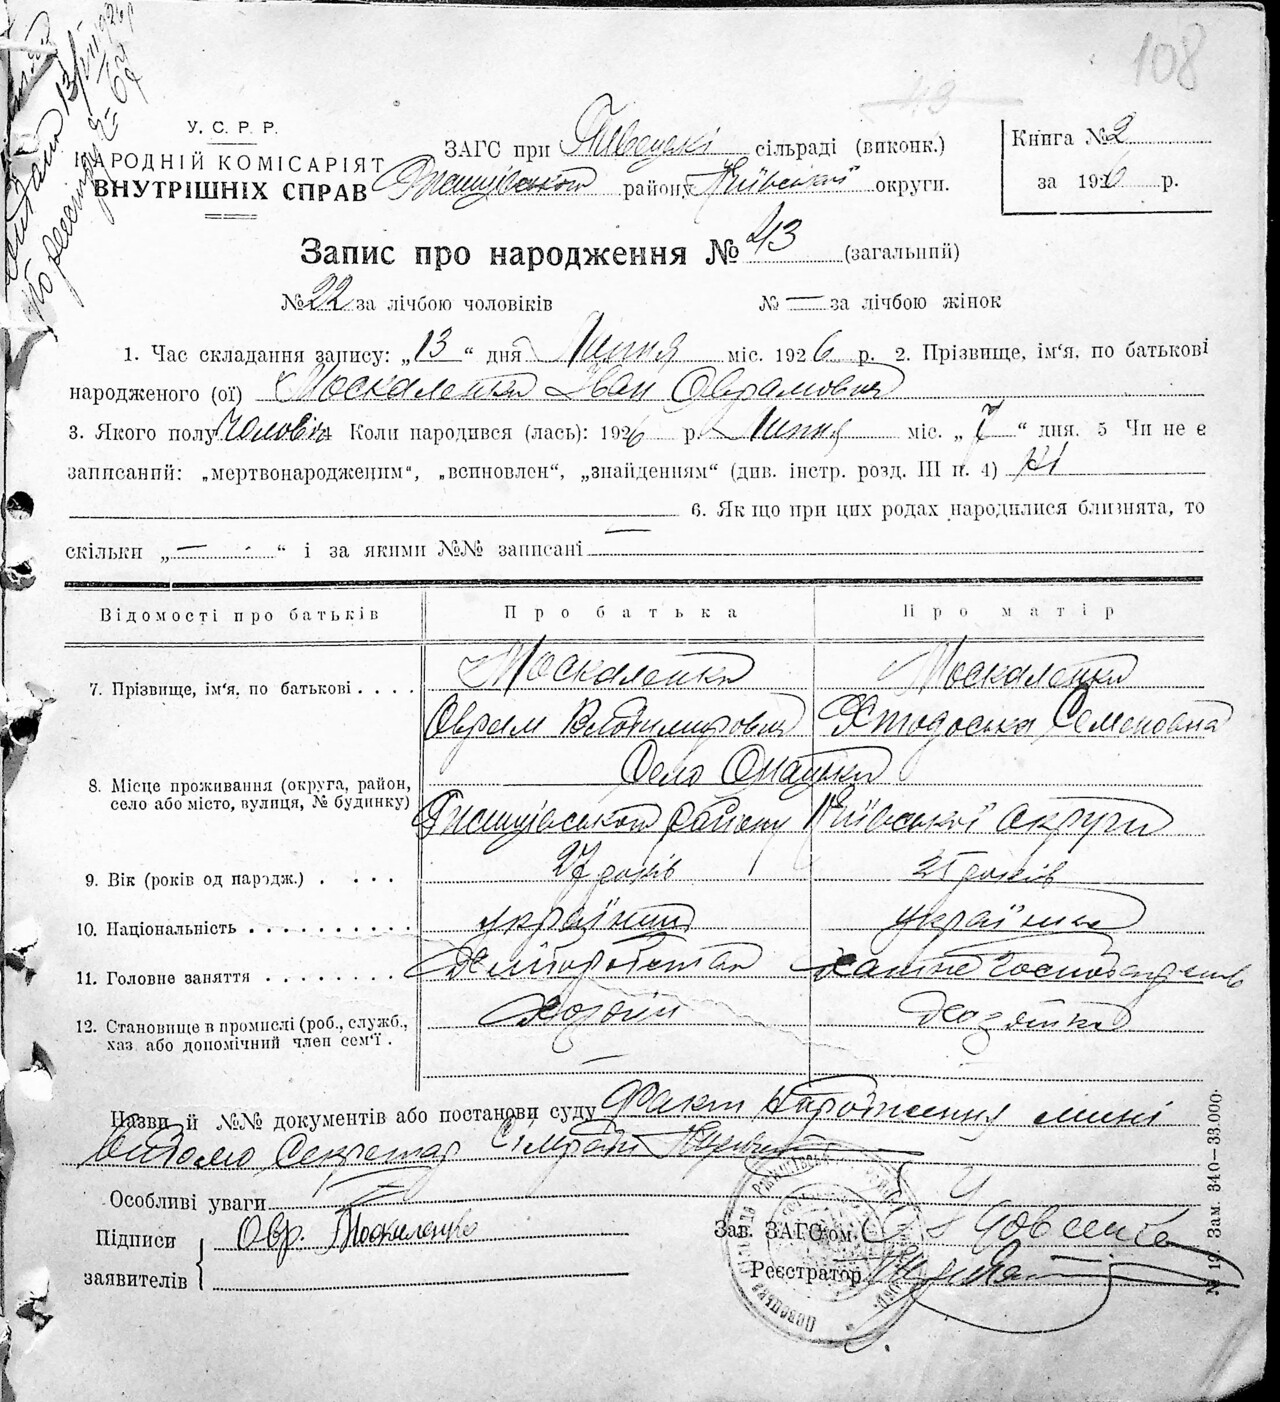 108
43
У. С. Р. Р.
НАРОДНІЙ КОМІСАРІЯТ
ВНУТРІШНІХ СПРАВ
ЗАГС при сільраді (виконк.)
району Київської округи.
Книга № 2
за 1926 р.
Запис про народження № 43 (загальний)
№ 22 за лічбою чоловіків № — за лічбою жінок
1. Час складання запису: „13“ дня Липня міс. 1926 р. 2. Прізвище, ім‘я, по батькові
народженого (ої) Москаленко Іван Оврамович
3. Якого полу чоловік 4 Коли народився (лась): 1926 р. Липня міс. „7“ дня. 5 Чи не є
записаний: „мертвонародженим“, „всиновлен“, „знайденням“ (див. інстр. розд. III п. 4) Ні
6. Якщо при цих родах народилися близнята, то
скільки „—“ і за якими №№ записані —
Відомості про батьків Про батька Про матір
7. Прізвище, ім‘я, по батькові . . . . Москаленко Москаленко
Оврам Володимирович Семеновна
8. Місце проживання (округа, район, Село
село або місто, вулиця, № будинку) району Київської округи
9. Вік (років од народж.) . . . . 27 років 25 років
10. Національність . . . . . . . . . . українець українка
11. Головне заняття . . . . . . . Хліборобство Хатнє господарство
12. Становище в промислі (роб., служб., Хозяїн Хозяйка
хаз. або допомічний член сем‘ї .
—
Назви й №№ документів або постанови суду Факт народження мині
відомо Секретар Сільради
Особливі уваги
Підписи Овр. Москаленко
заявителів
Зав. ЗАГС‘ом.
Реєстратор
№ 19. Зам. 340—33.000.